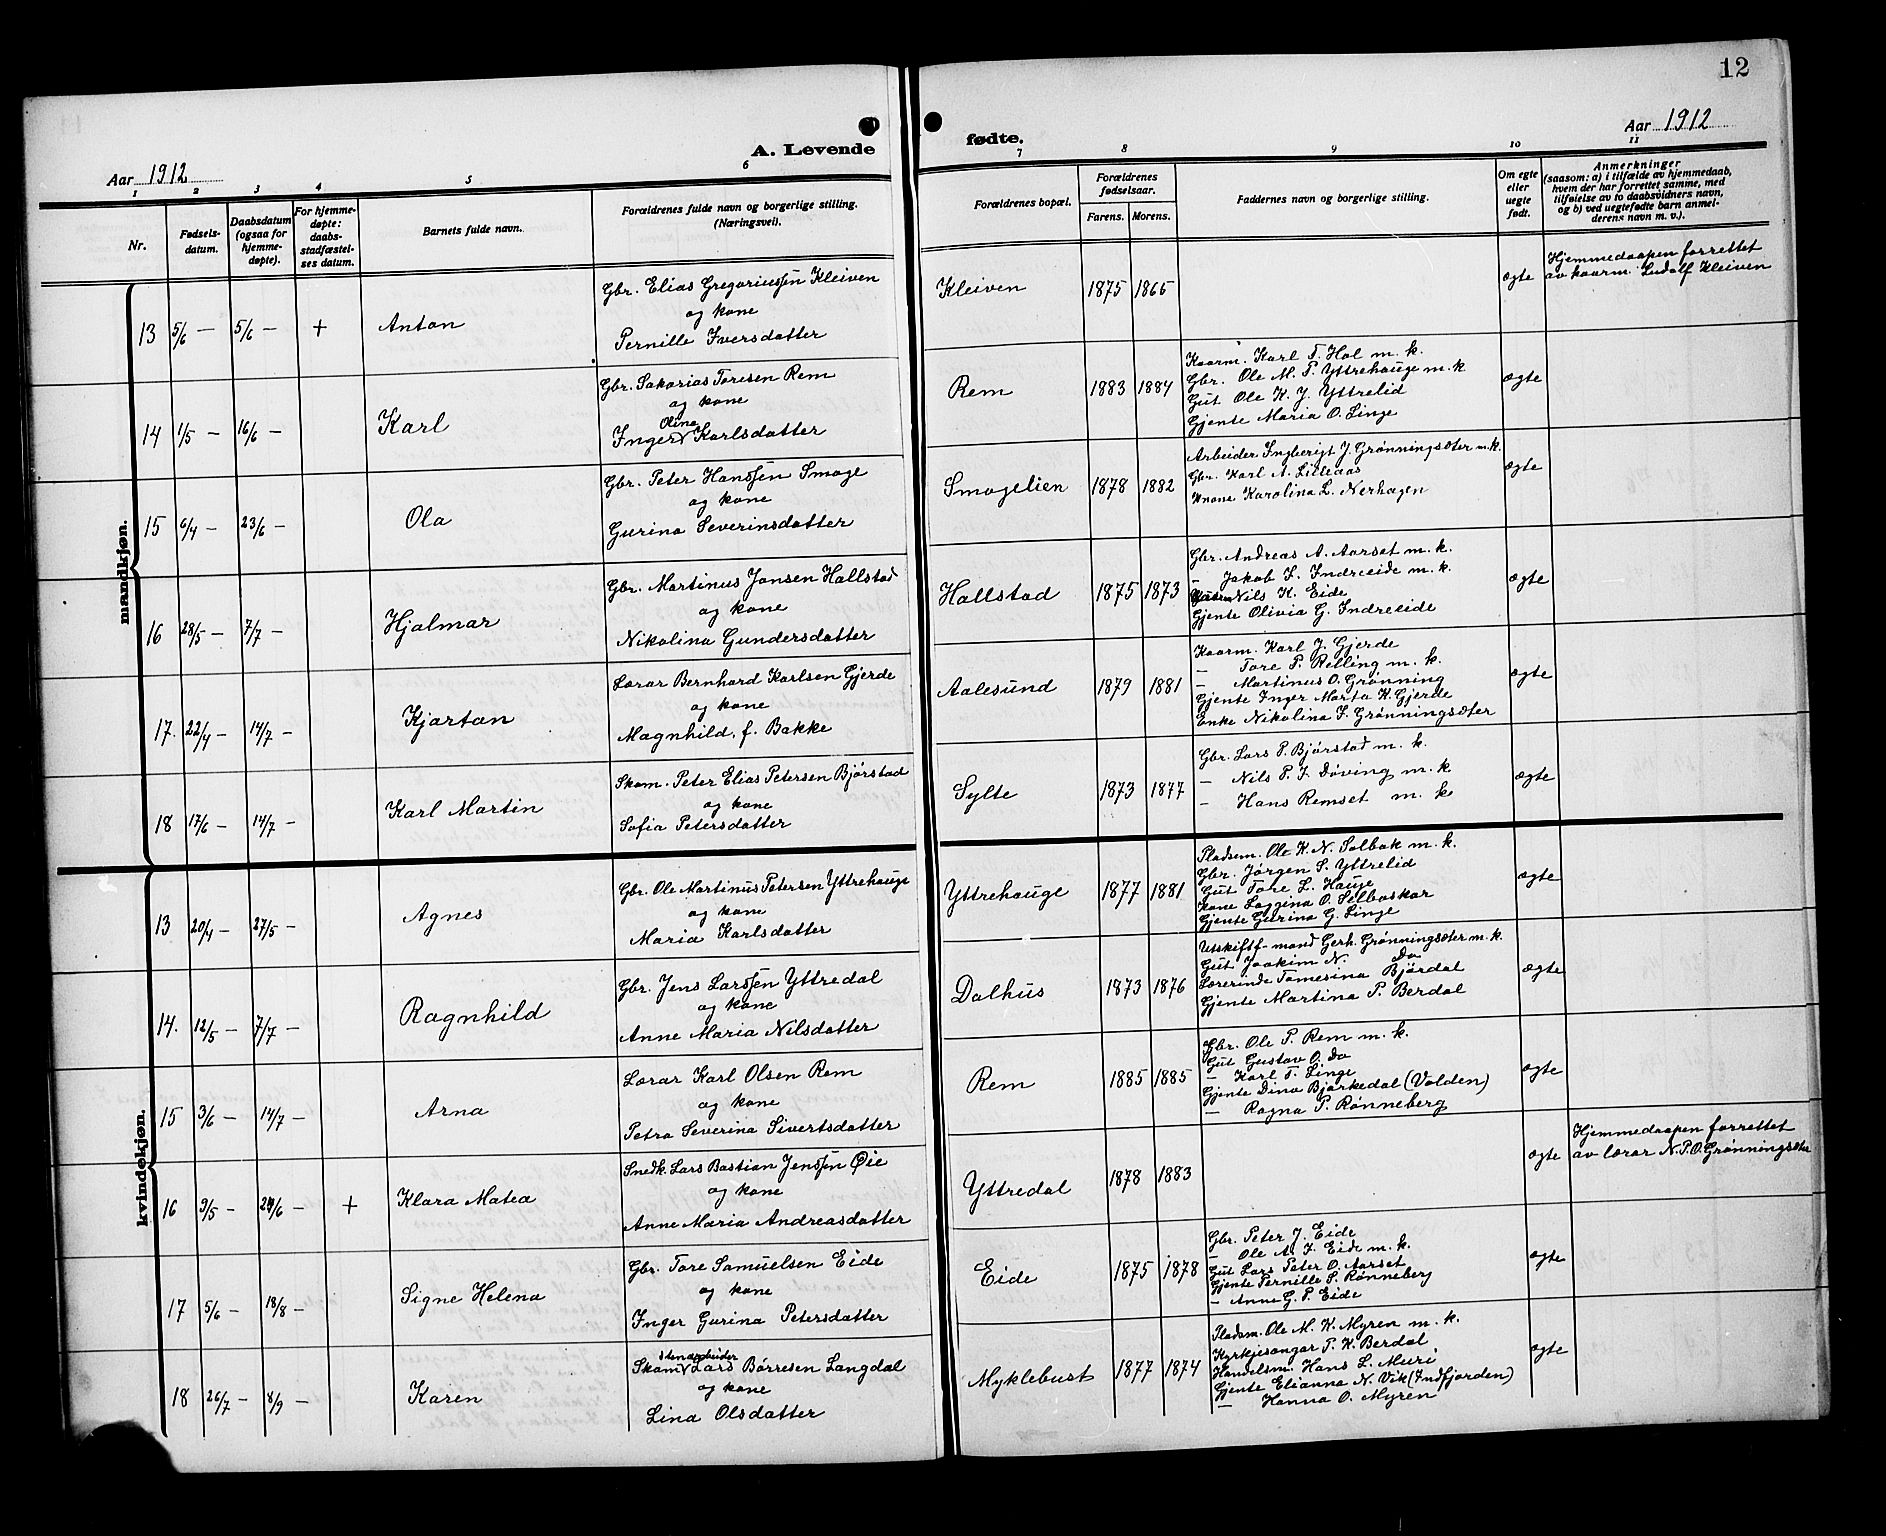 12
A. Levende fødte.
Aar 1912
Aar 1912
1 2 3 4 5 6 7 8 9 10 11
Nr.
Fødsels-
datum.
Daabsdatum
(ogsaa for
hjemme-
døpte).
For hjemme-
døpte:
daabs-
stadfæstel-
ses datum.
Barnets fulde navn.
Forældrenes fulde navn og borgerlige stilling.
(Næringsvei).
Forældrenes bopæl.
Forældrenes
fødselsaar.
Farens. Morens.
Faddernes navn og borgerlige stilling.
Om egte
eller
uegte
født.
Anmerkninger
(saasom: a) i tilfælde av hjemmedaab,
hvem der har forrettet samme, med
tilføielse av to daabsvidners navn,
og b) ved uegtefødte barn anmel-
derens navn m. v.).
mandkjøn.
13 5/6 — 5/6 — + Anton
Gbr. Elias Gregoriussen Kleiven
og kone
Pernille Iversdatter
Kleiven 1875 1865
ægte
Hjemmedaapen forrettet
av kaarm. Ludolf Kleiven
14 1/5 — 16/6 — Karl
Gbr. Sakarias Toresen Rem
og kone
Olina
Inger Karlsdatter
Rem 1883 1884
Kaarm. Karl T. Hol m. k.
Gbr. Ole M. P. Yttrehauge m. k
Gut Ole K. J. Yttrelid
Gjente Maria O. Linge
ægte
15 6/4 — 23/6 — Ola
Gbr. Peter Hanssen Smoge
og kone
Gurina Severinsdatter
Smogelien 1878 1882
Arbeider Ingberigt J. Grønningsæter m. k.
Gbr. Karl A. Lilleaas
Kone Karolina L. Nerhagen
ægte
16 28/5 — 7/7 — Hjalmar
Gbr. Martinus Jonsen Hallstad
og kone
Nikolina Gundersdatter
Hallstad 1875 1873
Gbr. Andreas A. Aarset m. k.
— Jakob I. Indreeide m. k.
Nils K. Eide
Gjente Olivia G. Indreeide
ægte
17. 22/4 — 14/7 — Kjartan
Lærar Bernhard Karlsen Gjerde
og kone
Magnhild, f. Bakke
Aalesund 1879 1881
Kaarm. Karl J. Gjerde
— Tore P. Relling m. k.
— Martinus O. Grønning
Gjente Inger Marta K. Gjerde
Enke Nikolina I. Grønningsæter
ægte
18 17/6 — 14/7 — Karl Martin
Skom. Peter Elias Petersen Bjørstad
og kone
Sofia Petersdatter
Sylte 1873 1877
Gbr. Lars P. Bjørstad m. k.
— Nils P. I. Døving m. k
— Hans Remset m. k
ægte
kvindekjøn.
13 20/4 — 27/5 — Agnes
Gbr. Ole Martinus Petersen Yttrehauge
og kone
Maria Karlsdatter
Yttrehauge 1877 1881
Pladsm. Ole K. N. Solbak m. k.
Gbr. Jørgen S. Yttrelid
Gut Tore L. Hauge
Kone Loggina O. Selboskar
Gjente Gurina G. Linge
ægte
14. 12/5 — 7/7 — Ragnhild
Gbr. Jens Larssen Yttredal
og kone
Anne Maria Nilsdatter
Dalhus 1873 1876
Utskiftf-mand Gerh. Grønningsæter m. k.
Gut Joakim N. Do
Lærerinde Tomesina Bjørdal
Gjente Martina P. Berdal
ægte
15 3/6 — 14/7 — Arna
Lærar Karl Olsen Rem
og kone
Petra Severina Sivertsdatter
Rem 1885 1885
Gbr. Ole P. Rem m. k.
Gut Gustav O. Do
— Karl T. Linge
Gjente Dina Bjørkedal (Volden)
— Ragna P. Rønneberg
ægte
16 9/5 — 24/6 — + Klara Matea
Snedk. Lars Bastian Jenssen Øie
og kone
Anne Maria Andreasdatter
Yttredal 1878 1883
ægte
Hjemmedaapen forrettet
av lærar N. P. O. Grønningsæter
17 5/6 — 18/8 — Signe Helena
Gbr. Tore Samuelsen Eide
og kone
Inger Gurina Petersdatter
Eide 1875 1878
Gbr. Peter J. Eide
— Ole A. I. Eide m. k.
Gut Lars Peter O. Aarset
Gjente Pernille S. Rønneberg
— Anne G. P. Eide
ægte
18 26/7 — 8/9 — Karen
stenarbeider
Skom. Lars Børresen Langdal
og kone
Lina Olsdatter
Myklebust 1877 1874
Pladsm. Ole M. K. Myren m. k.
Kyrkjesongar P. K. Berdal
Handelsm. Hans L. Muri
Gjente Elianna N. Vik (Indfjorden)
— Hanna O. Myren
ægte